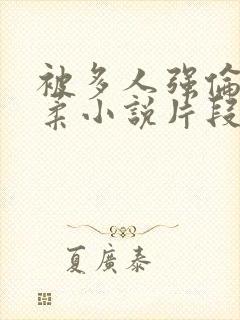 被多人强倫
柔小說片段
夏廣泰